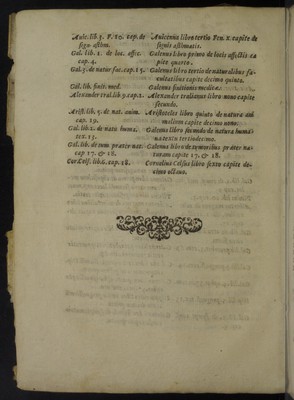 Auic. lib. 3. F. 10. cap. de Auicennas libro tertio Fen. X. capite de
signis asthm. signis asthmatis.
Gal. lib. 1. de loc. affec. Galenus libro primo de locis affectis ca
cap. 4. pite quarto.
Gal. 3. de natur fac. cap. 15. Galenus libro tertio de naturalibus fa-
cultatibus capite decimo quinto.
Gal. lib. finit. med. Galenus finitionis medicæ.
Alexander tral. lib. 9. cap. 2. Alexander trallianus libro nono capite
secundo.
Arist. lib. 5. de nat. anim. Aristoteles libro quinto de natura ani
cap. 19. malium capite decimo nono.
Gal. lib. 2. de natu. huma. Galenus libro secundo de natura huma
ter. 13. na textu tertiodecimo.
Gal. lib. de tum præter nat. Galenus libro de tumoribus præter na-
cap 17. & 18. turam capite 17. & 18.
Cor. Cels. lib. 6. cap. 18. Cornelius Celsus libro sexto capite de-
cimo octauo.